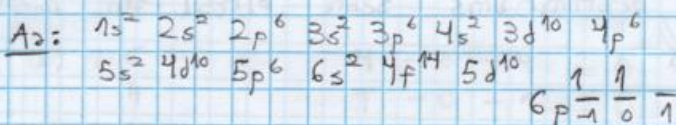 A2: 1s² 2s² 2p⁶ 3s² 3p⁶ 4s² 3d¹⁰ 4p⁶
5s² 4d¹⁰ 5p⁶ 6s² 4f¹⁴ 5d¹⁰
6p 1 1
-1 0 1